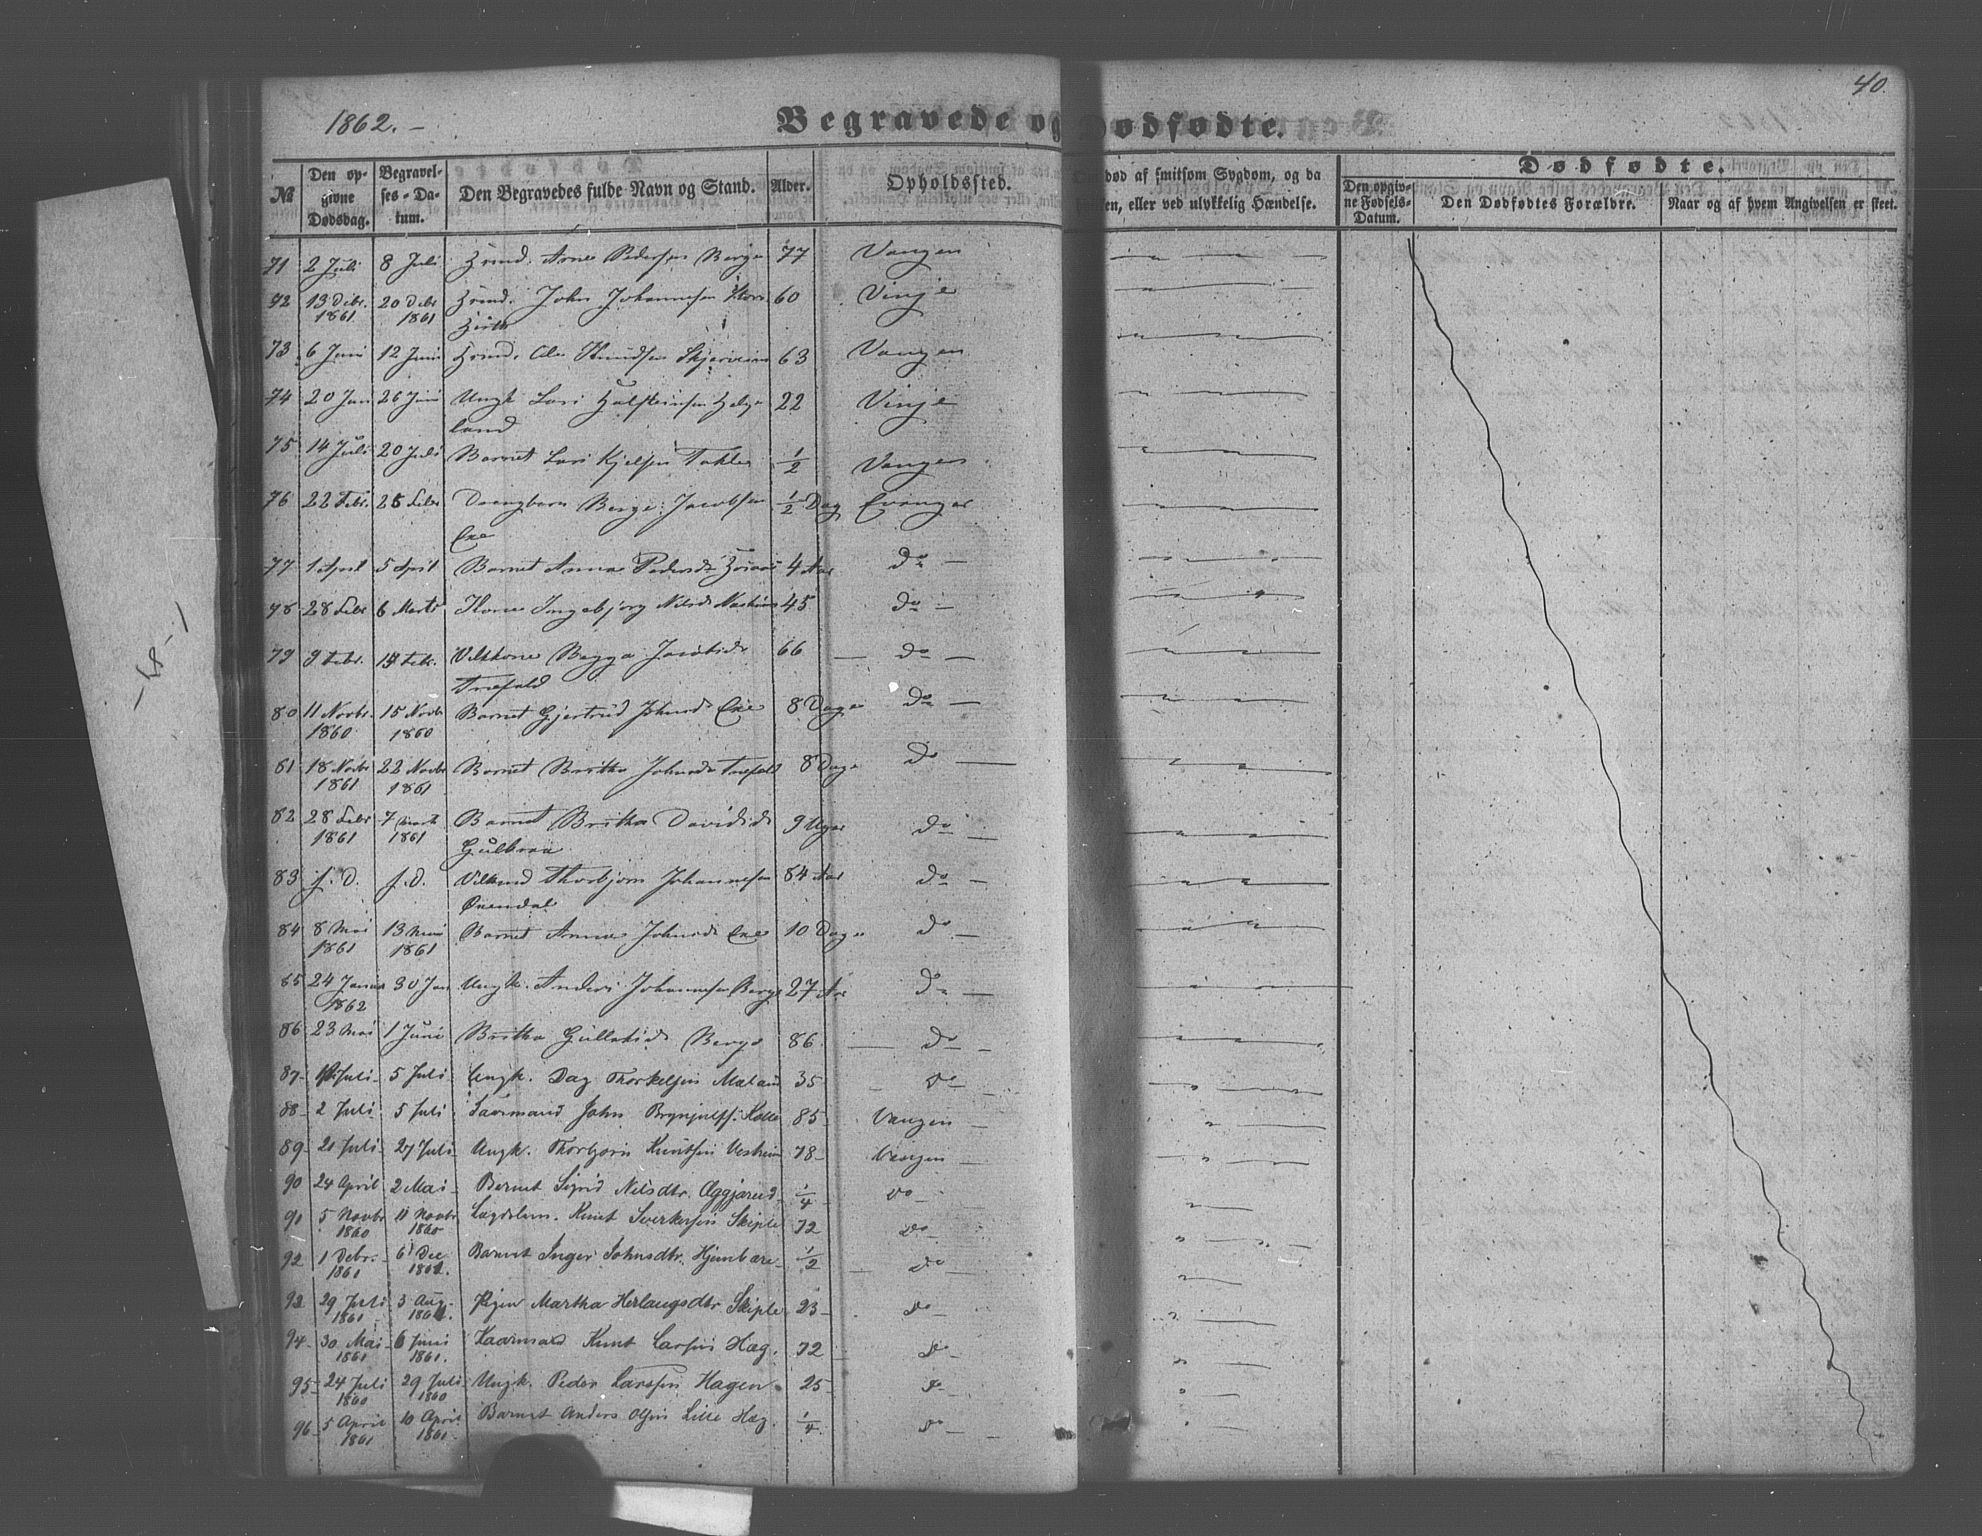 1862. –
40.
Begravede og Dødfødte.
№
Den opgivne Dødsdag.
Begravelses-Datum.
Den Begravedes fulde Navn og Stand.
Alder.
Opholdssted.
død af smitsom Sygdom, og da
en, eller ved ulykkelig Hændelse.
Dødfødte.
Den opgivne Fødsels-Datum.
Den Dødfødtes Forældre.
Naar og af hvem Angivelsen er skeet.
71 2 Juli 8 Juli Arne Pedersen Berge 77 Vangen
72 13 Debr. 1861 20 Debr 1861 John Johannesen 60 Vinje
73 6 Juni 12 Juni Ole Knudsen 63 Vangen
74 20 Juni 26 Juni Ungk Lars Halsteinsen Helge 22 Vinje
land
75 14 Juli 20 Juli Barnet Lars Kjelsen Takle 1/2 Vangen
76 22 Febr. 25 Febr Berge Jacobsen 1/2 Dag Evanger
Exe
77 1 April 5 April Barnet Anna Pedersdr 4 Aar Do –
78 28 Febr 6 Marts Kone Ingebjørg Nilsdr 45 Do –
79 9 Febr. Febr. Brygga Jacobsdr 66 – Do –
Træfald
80 11 Novbr. 1860 15 Novbr 1860 Barnet Gjertrud Johnsdr Exe 8 Dage Do –
81 18 Novbr 1861 22 Novbr 1861 Barnet Britha Johnsdr Træfald 8 Dage Do –
82 28 Febr 1861 7 Marts 1861 Barnet Britha Davidsdr 9 Uger Do –
Gulbraa
83 s. D. s. D. Thorbjørn Johannesen 84 Aar Do –
Øxendal
84 8 Mai 1861 13 Mai 1861 Barnet Anna Johnsdr Exe 10 Dage Do –
85 24 Januar 1862 30 Jan Ungk. Anders Johannesen Berge 27 Aar Do –
86 23 Mai 1 Juni Britha Gullaksdr Berge 86 – Do –
87 Juli 5 Juli Ungk. Dag Thorkelsen 35 – Do –
88 2 Juli 5 Juli John Brynjulfs. 85 Vangen –
89 21 Juli 27 Juli Ungk. Thorbjørn Knutsen 78 Vangen –
90 24 April 2 Mai Barnet Sigrid Nilsdtr. 1/4 Do –
91 5 Novbr 1860 11 Novbr 1860 Lægdslem. Knut Sverkersen Skiple 72 Do –
92 1 Debr. 1861 6 Dec 1861. Barnet Inger Johnsdtr. 1/2 – Do –
92 29 Juli 1861 3 Aug. 1861. Pigen Martha Herlaugsdtr Skiple 23 Do –
94 30 Mai 1861 6 Juni 1861. Kaarmand Knut Larsen Hæg. 72 – Do –
95 24 Juli 1860 29 Juli 1860 Ungk. Peder Larssen Hagen 25 Do –
96 5 April 1861 10 April 1861 Barnet Anders Olsen Lille Hæg. 1/4 Do –